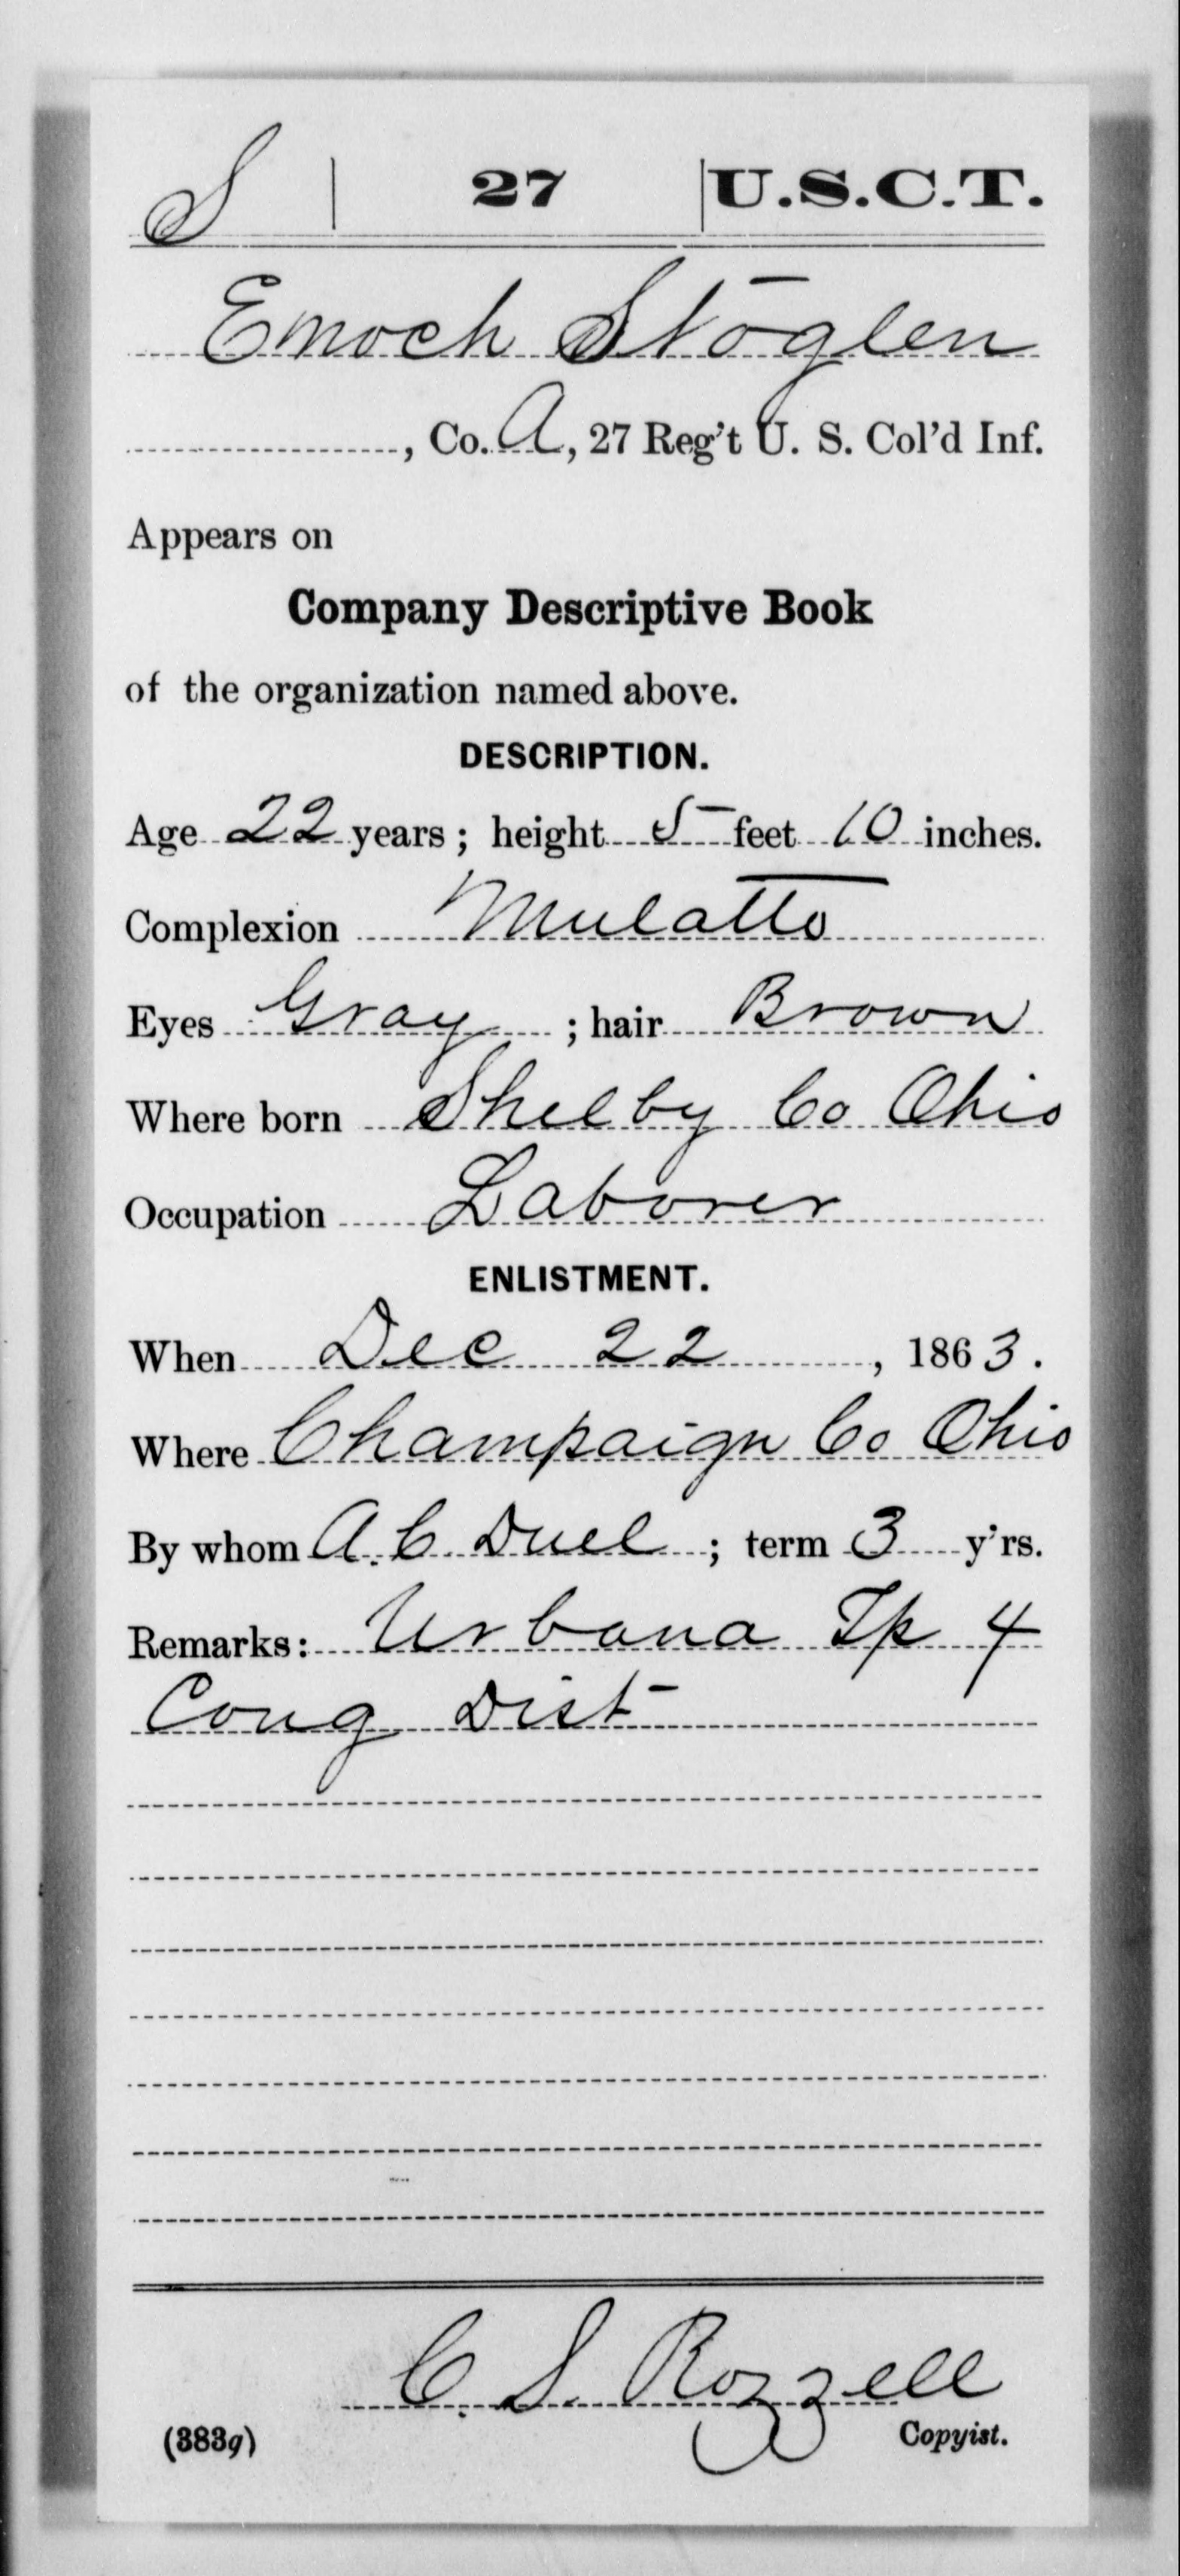 S | 27 | U.S.C.T.
Enoch Stoglen
, Co. A, 27 Reg't U. S. Col'd Inf.
Appears on
Company Descriptive Book
of the organization named above.
DESCRIPTION.
Age 22 years; height 5 feet 10 inches.
Complexion Mulatto
Eyes Gray ; hair Brown
Where born Shelby Co Ohio
Occupation Laborer
ENLISTMENT.
When Dec 22, 1863.
Where Champaign Co Ohio
By whom A. C. Duel ; term 3 y'rs.
Remarks: Urbana Tp 4
Cong Dist
C. S. Rozzell
(383g) Copyist.